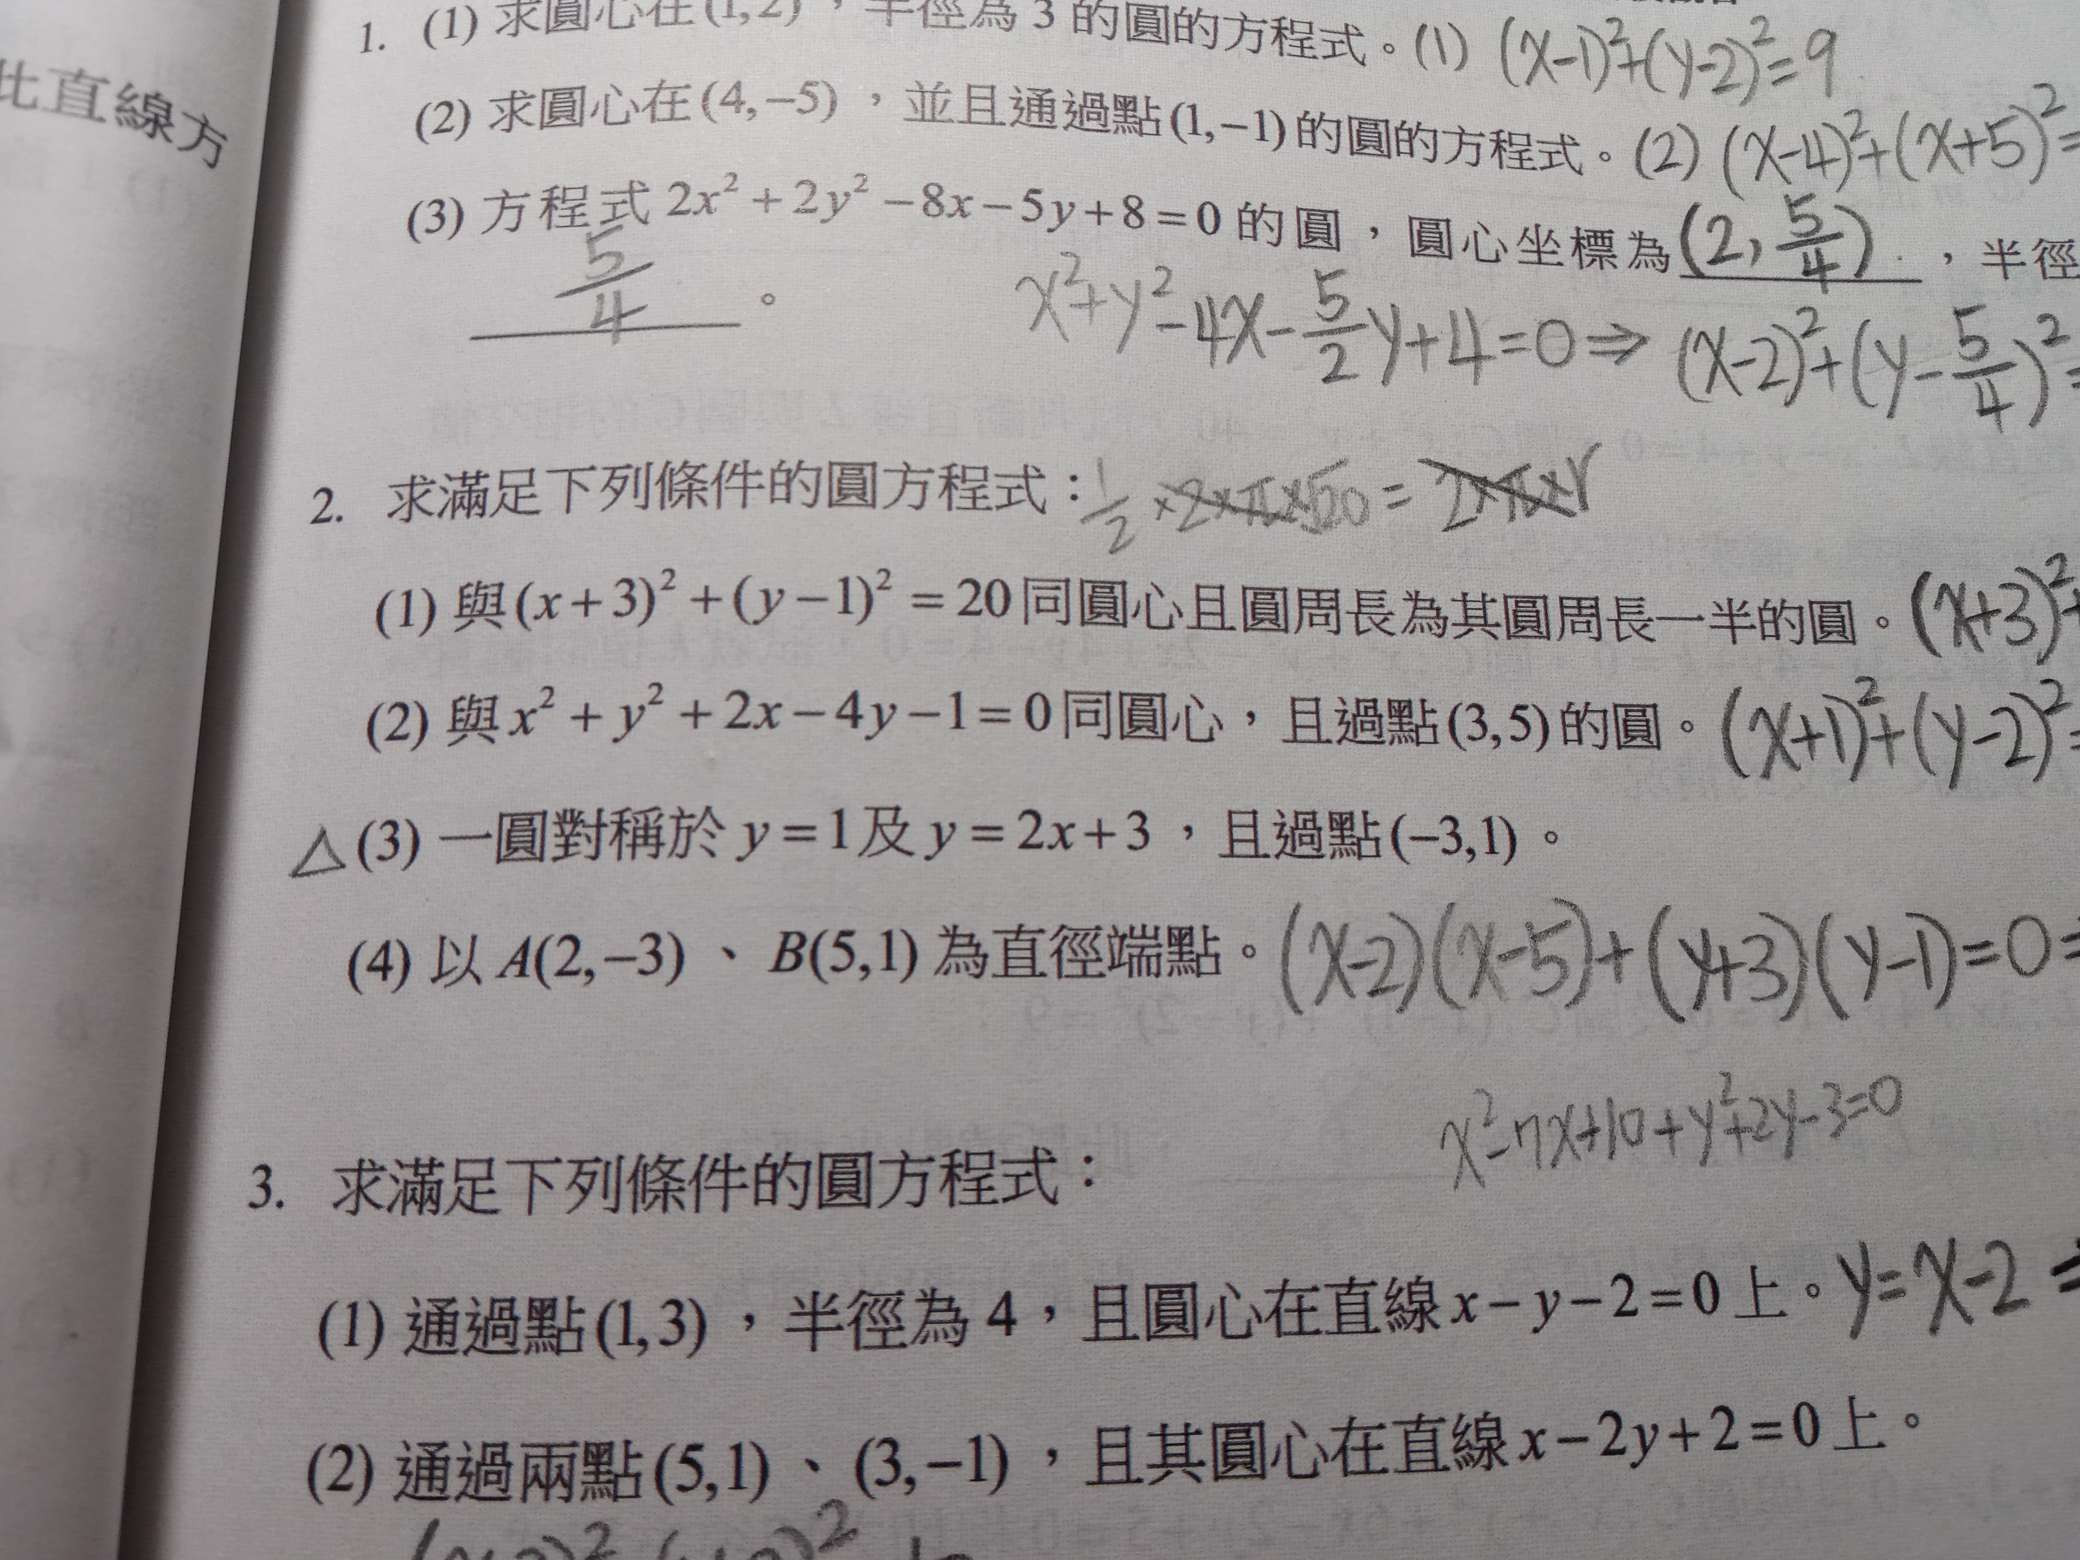 此直線方
1. (1) 求圓心在(1,2)，半徑為 3 的圓的方程式。(1) (x-1)²+(y-2)²=9
(2) 求圓心在(4,-5)，並且通過點(1,-1)的圓的方程式。(2) (x-4)²+(x+5)²=
(3) 方程式 2x²+2y²-8x-5y+8=0 的圓，圓心坐標為(2, 5/4)，半徑
5/4。
x²+y²-4x-5/2y+4=0⇒(x-2)²+(y-5/4)²=
2. 求滿足下列條件的圓方程式：1/2×2×π×√20=2×π×r
(1) 與(x+3)²+(y-1)²=20同圓心且圓周長為其圓周長一半的圓。(x+3)²+
(2) 與x²+y²+2x-4y-1=0同圓心，且過點(3,5)的圓。(x+1)²+(y-2)²=
△(3) 一圓對稱於 y=1及 y=2x+3，且過點(-3,1)。
(4) 以 A(2,-3)、B(5,1) 為直徑端點。(x-2)(x-5)+(y+3)(y-1)=0=
x²-7x+10+y²+2y-3=0
3. 求滿足下列條件的圓方程式：
(1) 通過點(1,3)，半徑為 4，且圓心在直線x-y-2=0上。y=x-2=
(2) 通過兩點(5,1)、(3,-1)，且其圓心在直線x-2y+2=0上。